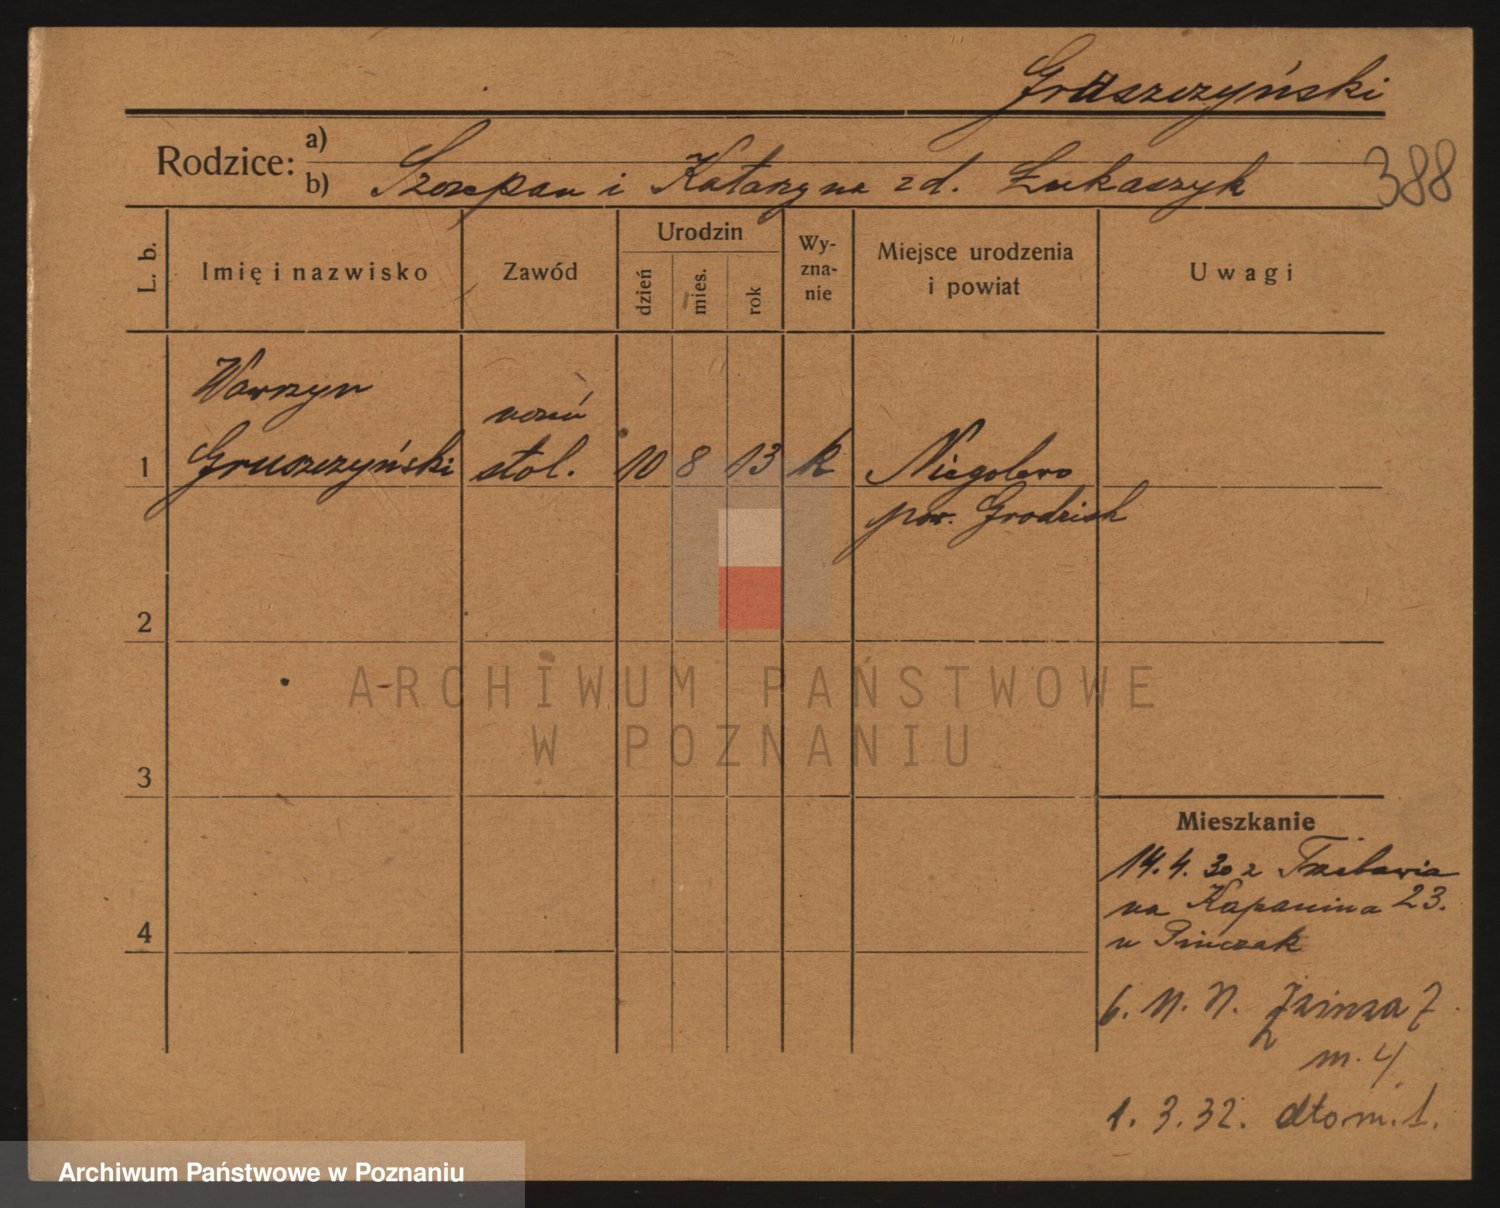 Gruszczyński
Rodzice: a)
b) Szczepan i Katarzyna zd. Łukaszyk
388
L. b.
Imię i nazwisko
Zawód
Urodzin
dzień
mies.
rok
Wy-
zna-
nie
Miejsce urodzenia
i powiat
Uwagi
Wawrzyn
1 Gruszczyński
uczeń
stol. 10 8 13 k Niegolewo
pow. Grodzisk
2
3
4
ARCHIWUM PAŃSTWOWE
W POZNANIU
Mieszkanie
14.4.30 z
na 23.
u Pińczak
6. 7
m. 4
1. 3. 32. dto m. 1.
Archiwum Państwowe w Poznaniu